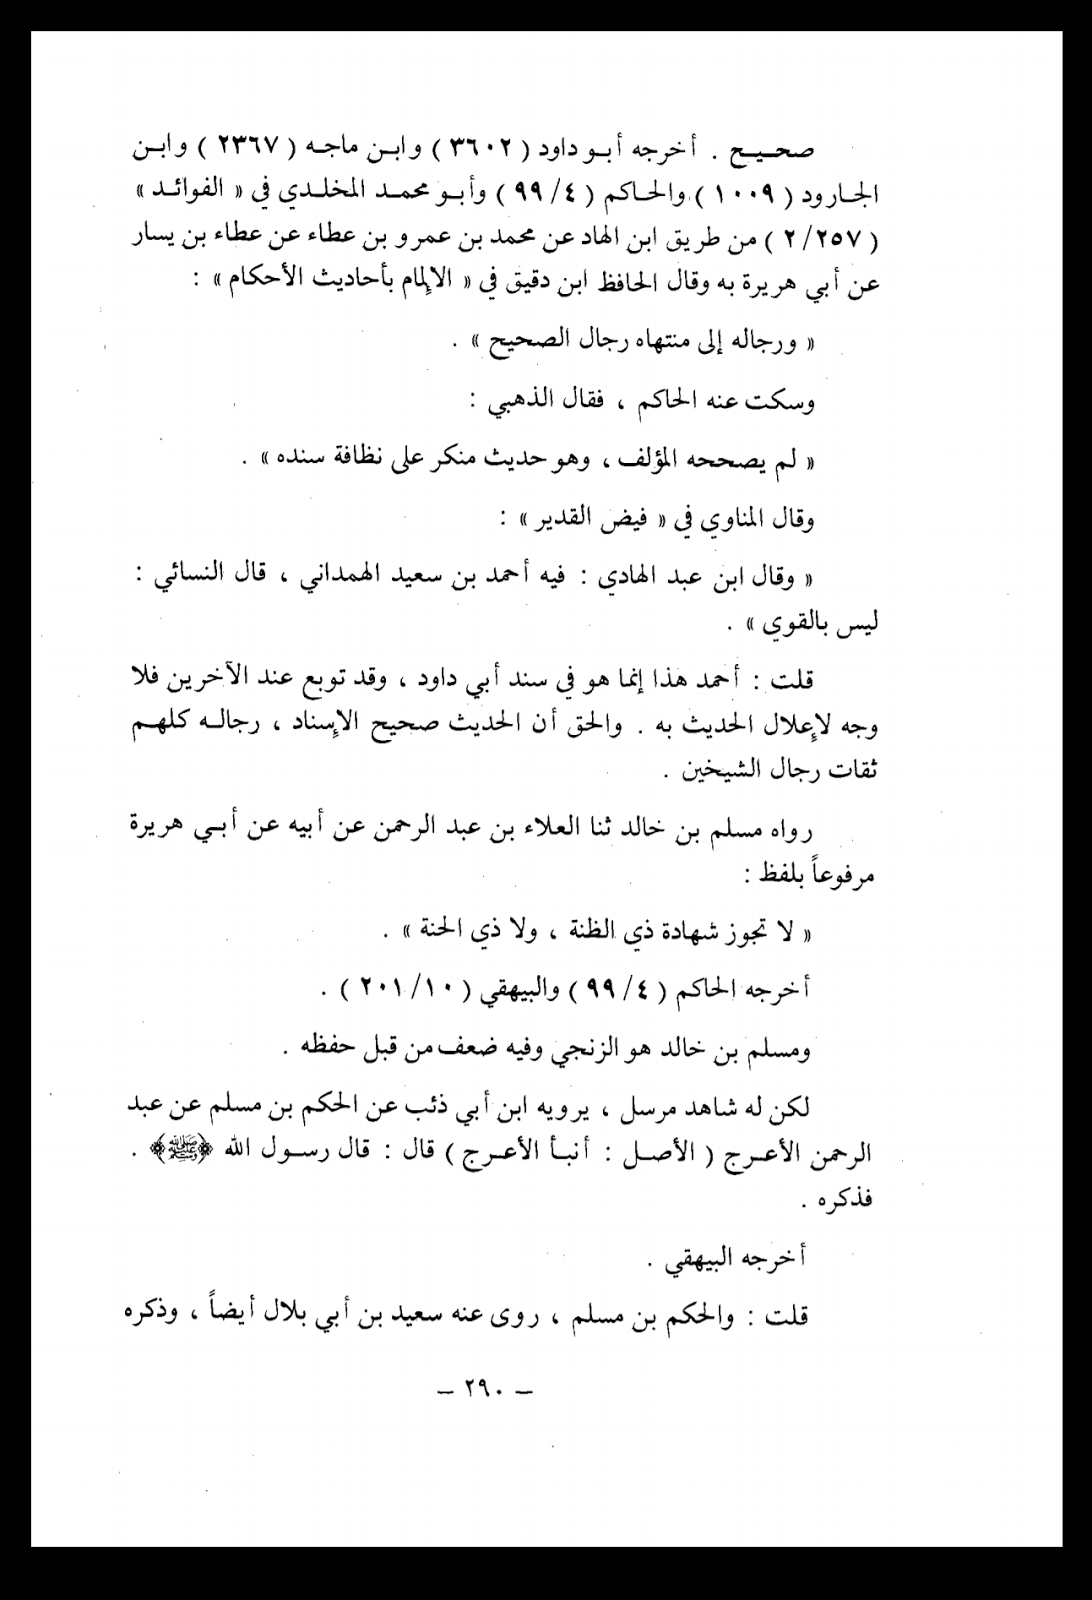 صحيح . أخرجه أبو داود ( ٣٦٠٢ ) وابن ماجه ( ٢٣٦٧ ) وابن
الجارود ( ١٠٠٩ ) والحاكم ( ٤/ ٩٩ ) وأبو محمد المخلدي في « الفوائد »
( ٢/٢٥٧ ) من طريق ابن الهاد عن محمد بن عمرو بن عطاء عن عطاء بن يسار
عن أبي هريرة به وقال الحافظ ابن دقيق في « الإلمام بأحاديث الأحكام » :
« ورجاله إلى منتهاه رجال الصحيح » .
وسكت عنه الحاكم ، فقال الذهبي :
« لم يصححه المؤلف ، وهو حديث منكر على نظافة سنده » .
وقال المناوي في « فيض القدير » :
« وقال ابن عبد الهادي : فيه أحمد بن سعيد الهمداني ، قال النسائي :
ليس بالقوي » .
قلت : أحمد هذا إنما هو في سند أبي داود ، وقد توبع عند الآخرين فلا
وجه لإعلال الحديث به . والحق أن الحديث صحيح الإسناد ، رجاله كلهم
ثقات رجال الشيخين .
رواه مسلم بن خالد ثنا العلاء بن عبد الرحمن عن أبيه عن أبي هريرة
مرفوعاً بلفظ :
« لا تجوز شهادة ذي الظنة ، ولا ذي الحنة » .
أخرجه الحاكم ( ٤/ ٩٩ ) والبيهقي ( ١٠/ ٢٠١ ) .
ومسلم بن خالد هو الزنجي وفيه ضعف من قبل حفظه .
لكن له شاهد مرسل ، يرويه ابن أبي ذئب عن الحكم بن مسلم عن عبد
الرحمن الأعرج ( الأصل : أنبأ الأعرج ) قال : قال رسول الله ﴿ﷺ﴾ .
فذكره .
أخرجه البيهقي .
قلت : والحكم بن مسلم ، روى عنه سعيد بن أبي بلال أيضاً ، وذكره
– ٢٩٠ –